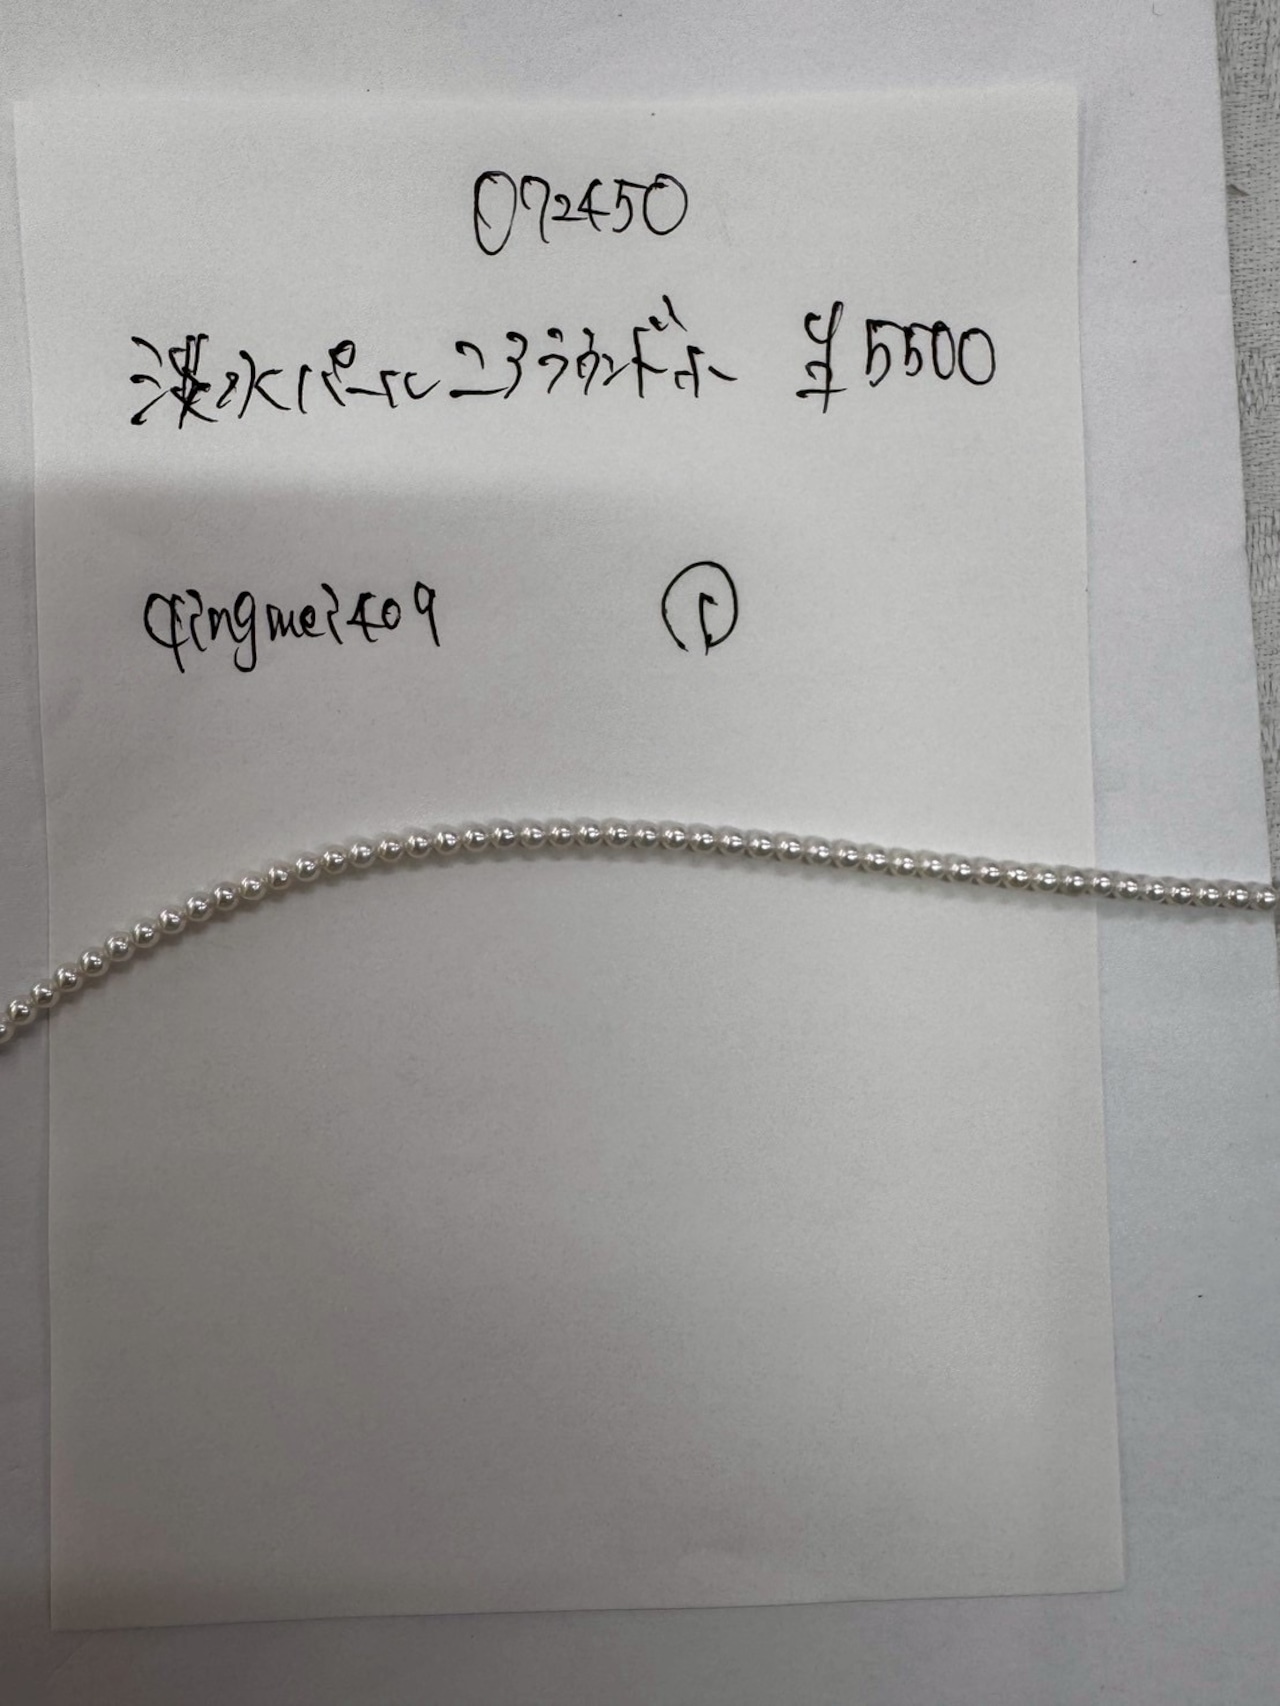 072450
淡水パール 23ラウンドホ ¥5500
qingmei409 ①